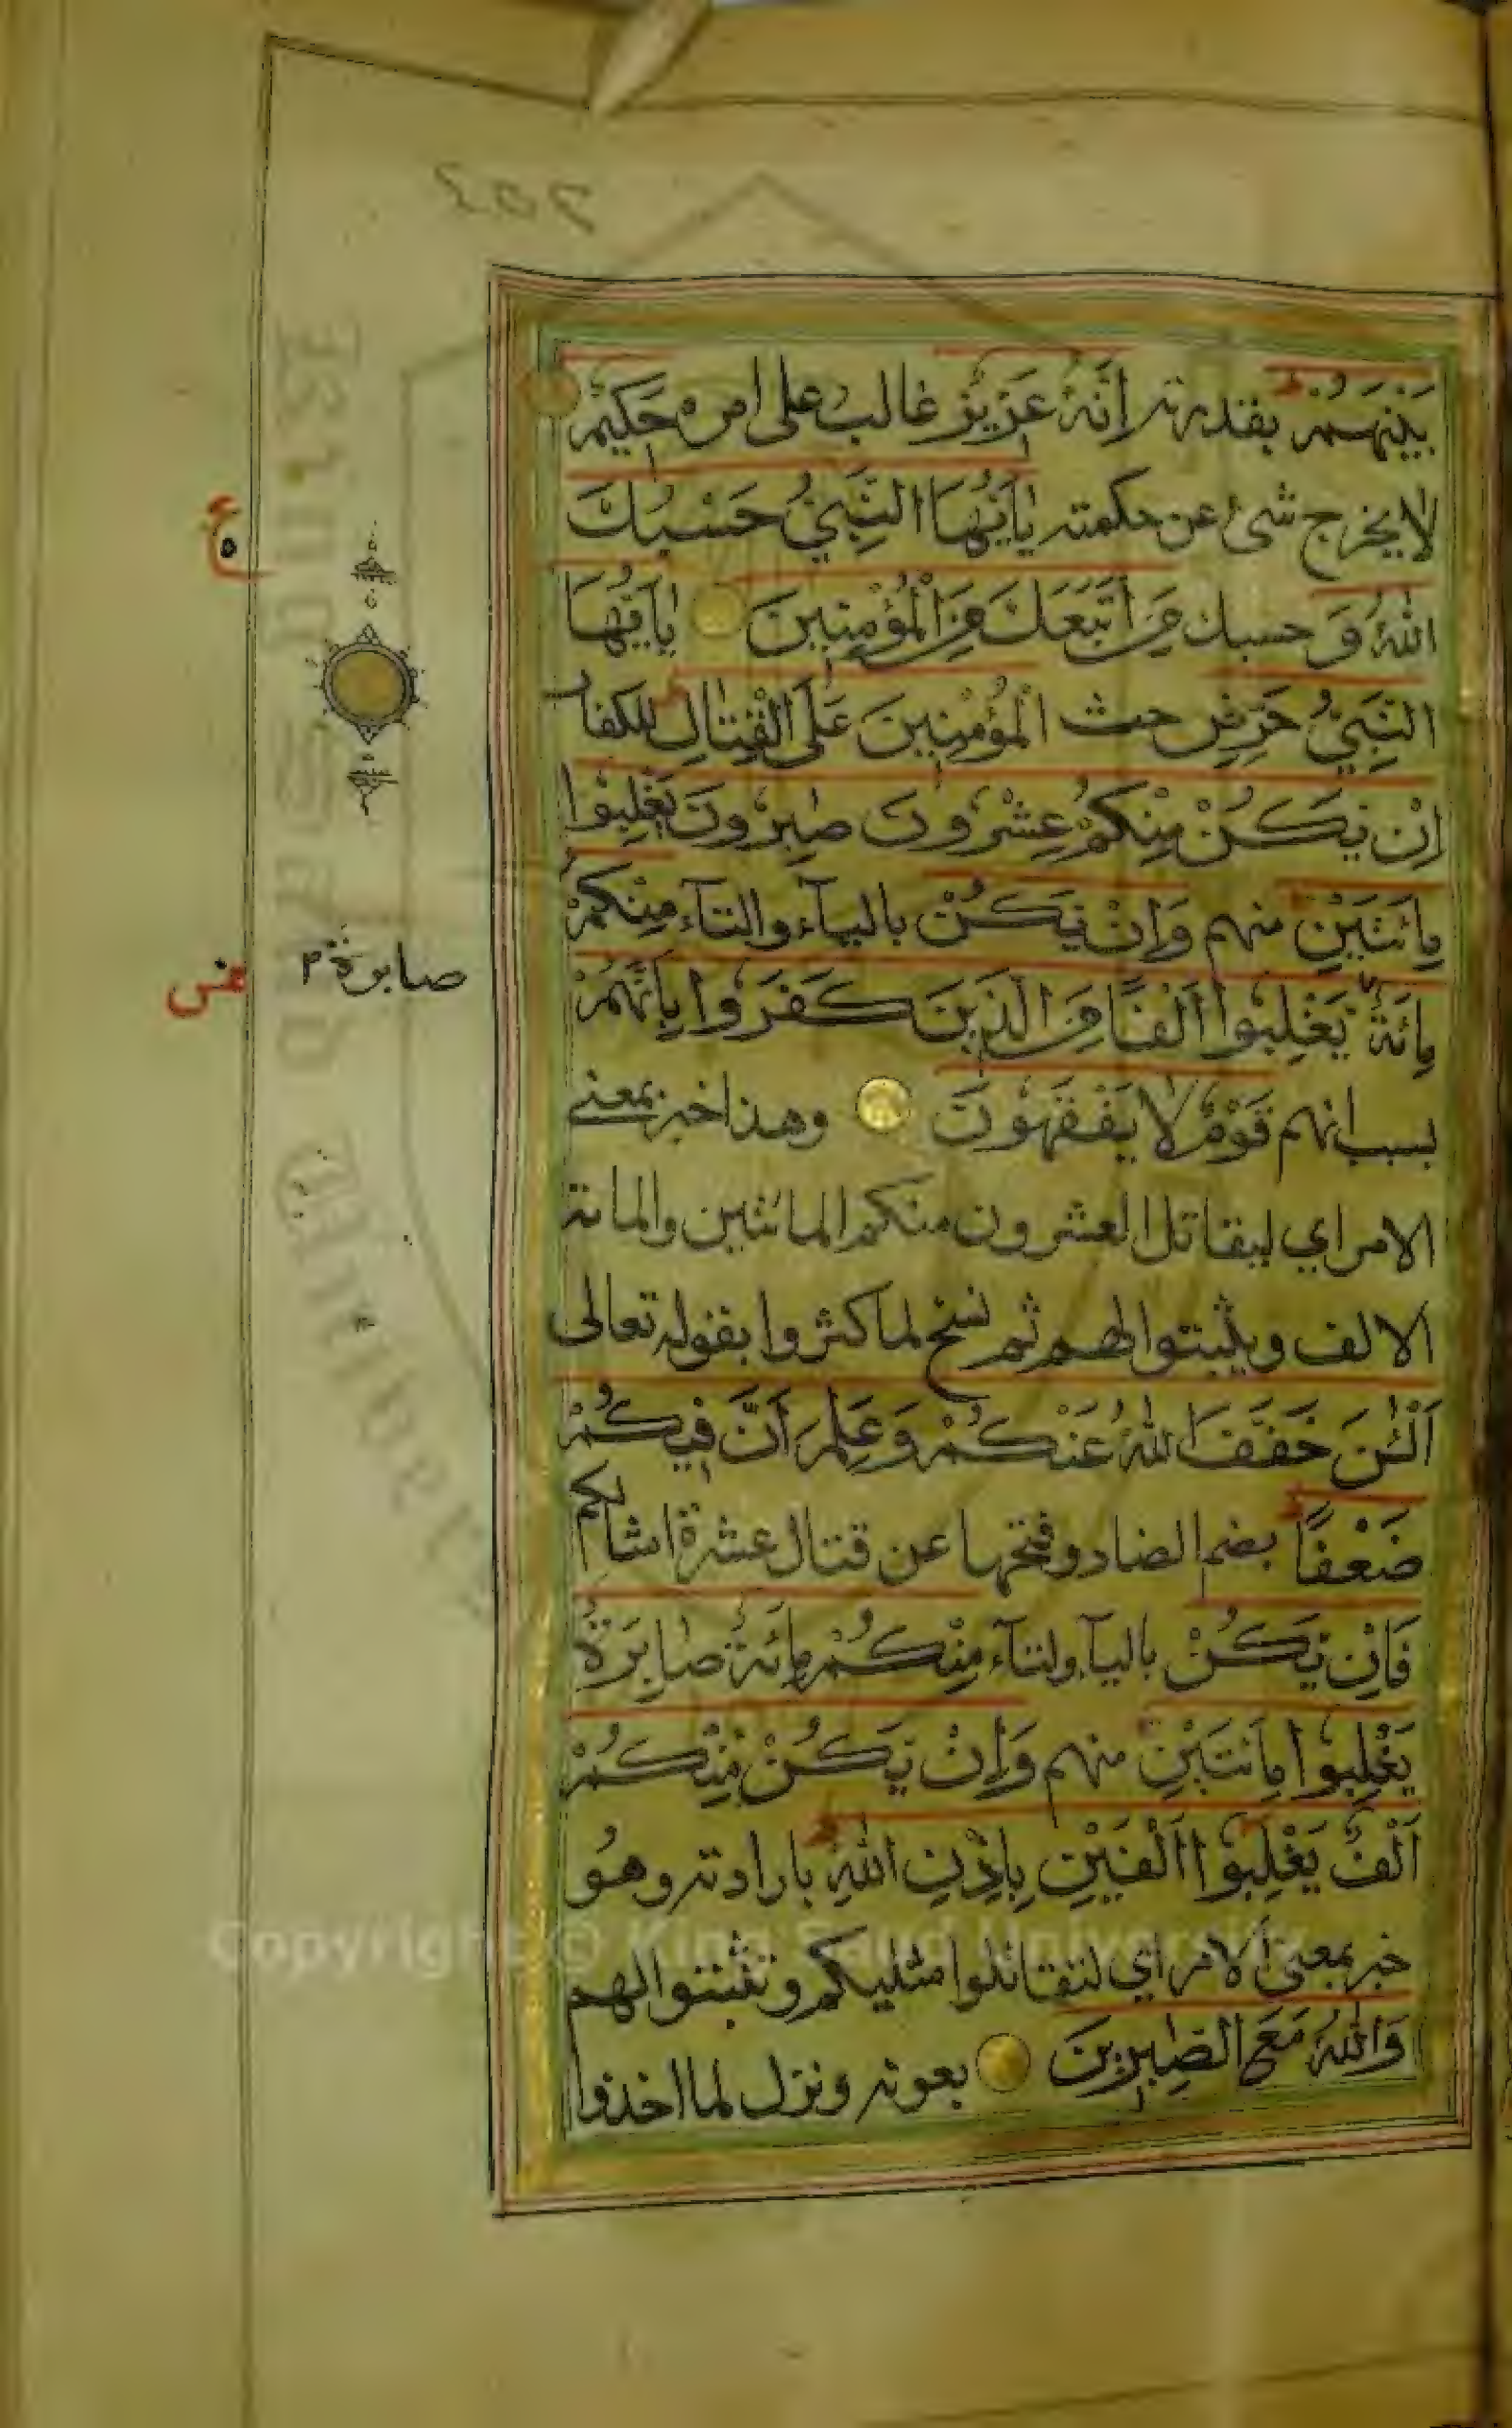 بَيْنَهُمْ بقدرته اِنَّهُ عَزِيْزٌ غالب على امره حَكِيْمٌ
لا يخرج شئ عن حكمته يٰاَيُّهَا النَّبِيُّ حَسْبُكَ
اللّٰهُ وَ حسبك مَنِ اتَّبَعَكَ مِنَ الْمُؤْمِنِينَ يٰاَيُّهَا
النَّبِيُّ حَرِّضِ حث الْمُؤْمِنِينَ عَلَى الْقِتَالِ للكفار
اِنْ يَكُنْ مِنْكُمْ عِشْرُونَ صٰبِرُونَ يَغْلِبُوْا
مِائَتَيْنِ منهم وَاِنْ يَكُنْ بالياء والتاء مِنْكُمْ
مِائَةٌ يَغْلِبُوْا اَلْفًا مِنَ الَّذِينَ كَفَرُوْا بِاَنَّهُمْ
بسبب انهم قَوْمٌ لَا يَفْقَهُونَ وهذا خبر بمعنى
الامر اي ليقاتل العشرون منكم المائتين والمائة
الالف ويثبتوا لهم ثم نسخ لما كثروا بقوله تعالى
اَلْئٰنَ خَفَّفَ اللّٰهُ عَنْكُمْ وَعَلِمَ اَنَّ فِيكُمْ
ضَعْفًا بضم الضاد وفتحها عن قتال عشرة امثالكم
فَاِنْ يَكُنْ بالياء ولتاء مِنْكُمْ مِائَةٌ صَابِرَةٌ
يَغْلِبُوْا مِائَتَيْنِ منهم وَاِنْ يَكُنْ مِنْكُمْ
اَلْفٌ يَغْلِبُوْا اَلْفَيْنِ بِاِذْنِ اللّٰهِ بارادته وهو
خبر بمعنى الامر اي لتقاتلوا مثليكم وتثبتوا لهم
وَاللّٰهُ مَعَ الصّٰبِرِينَ بعونه ونزل لما اخذوا
ع
٥
صابرة ٢
Copyright © King Saud University